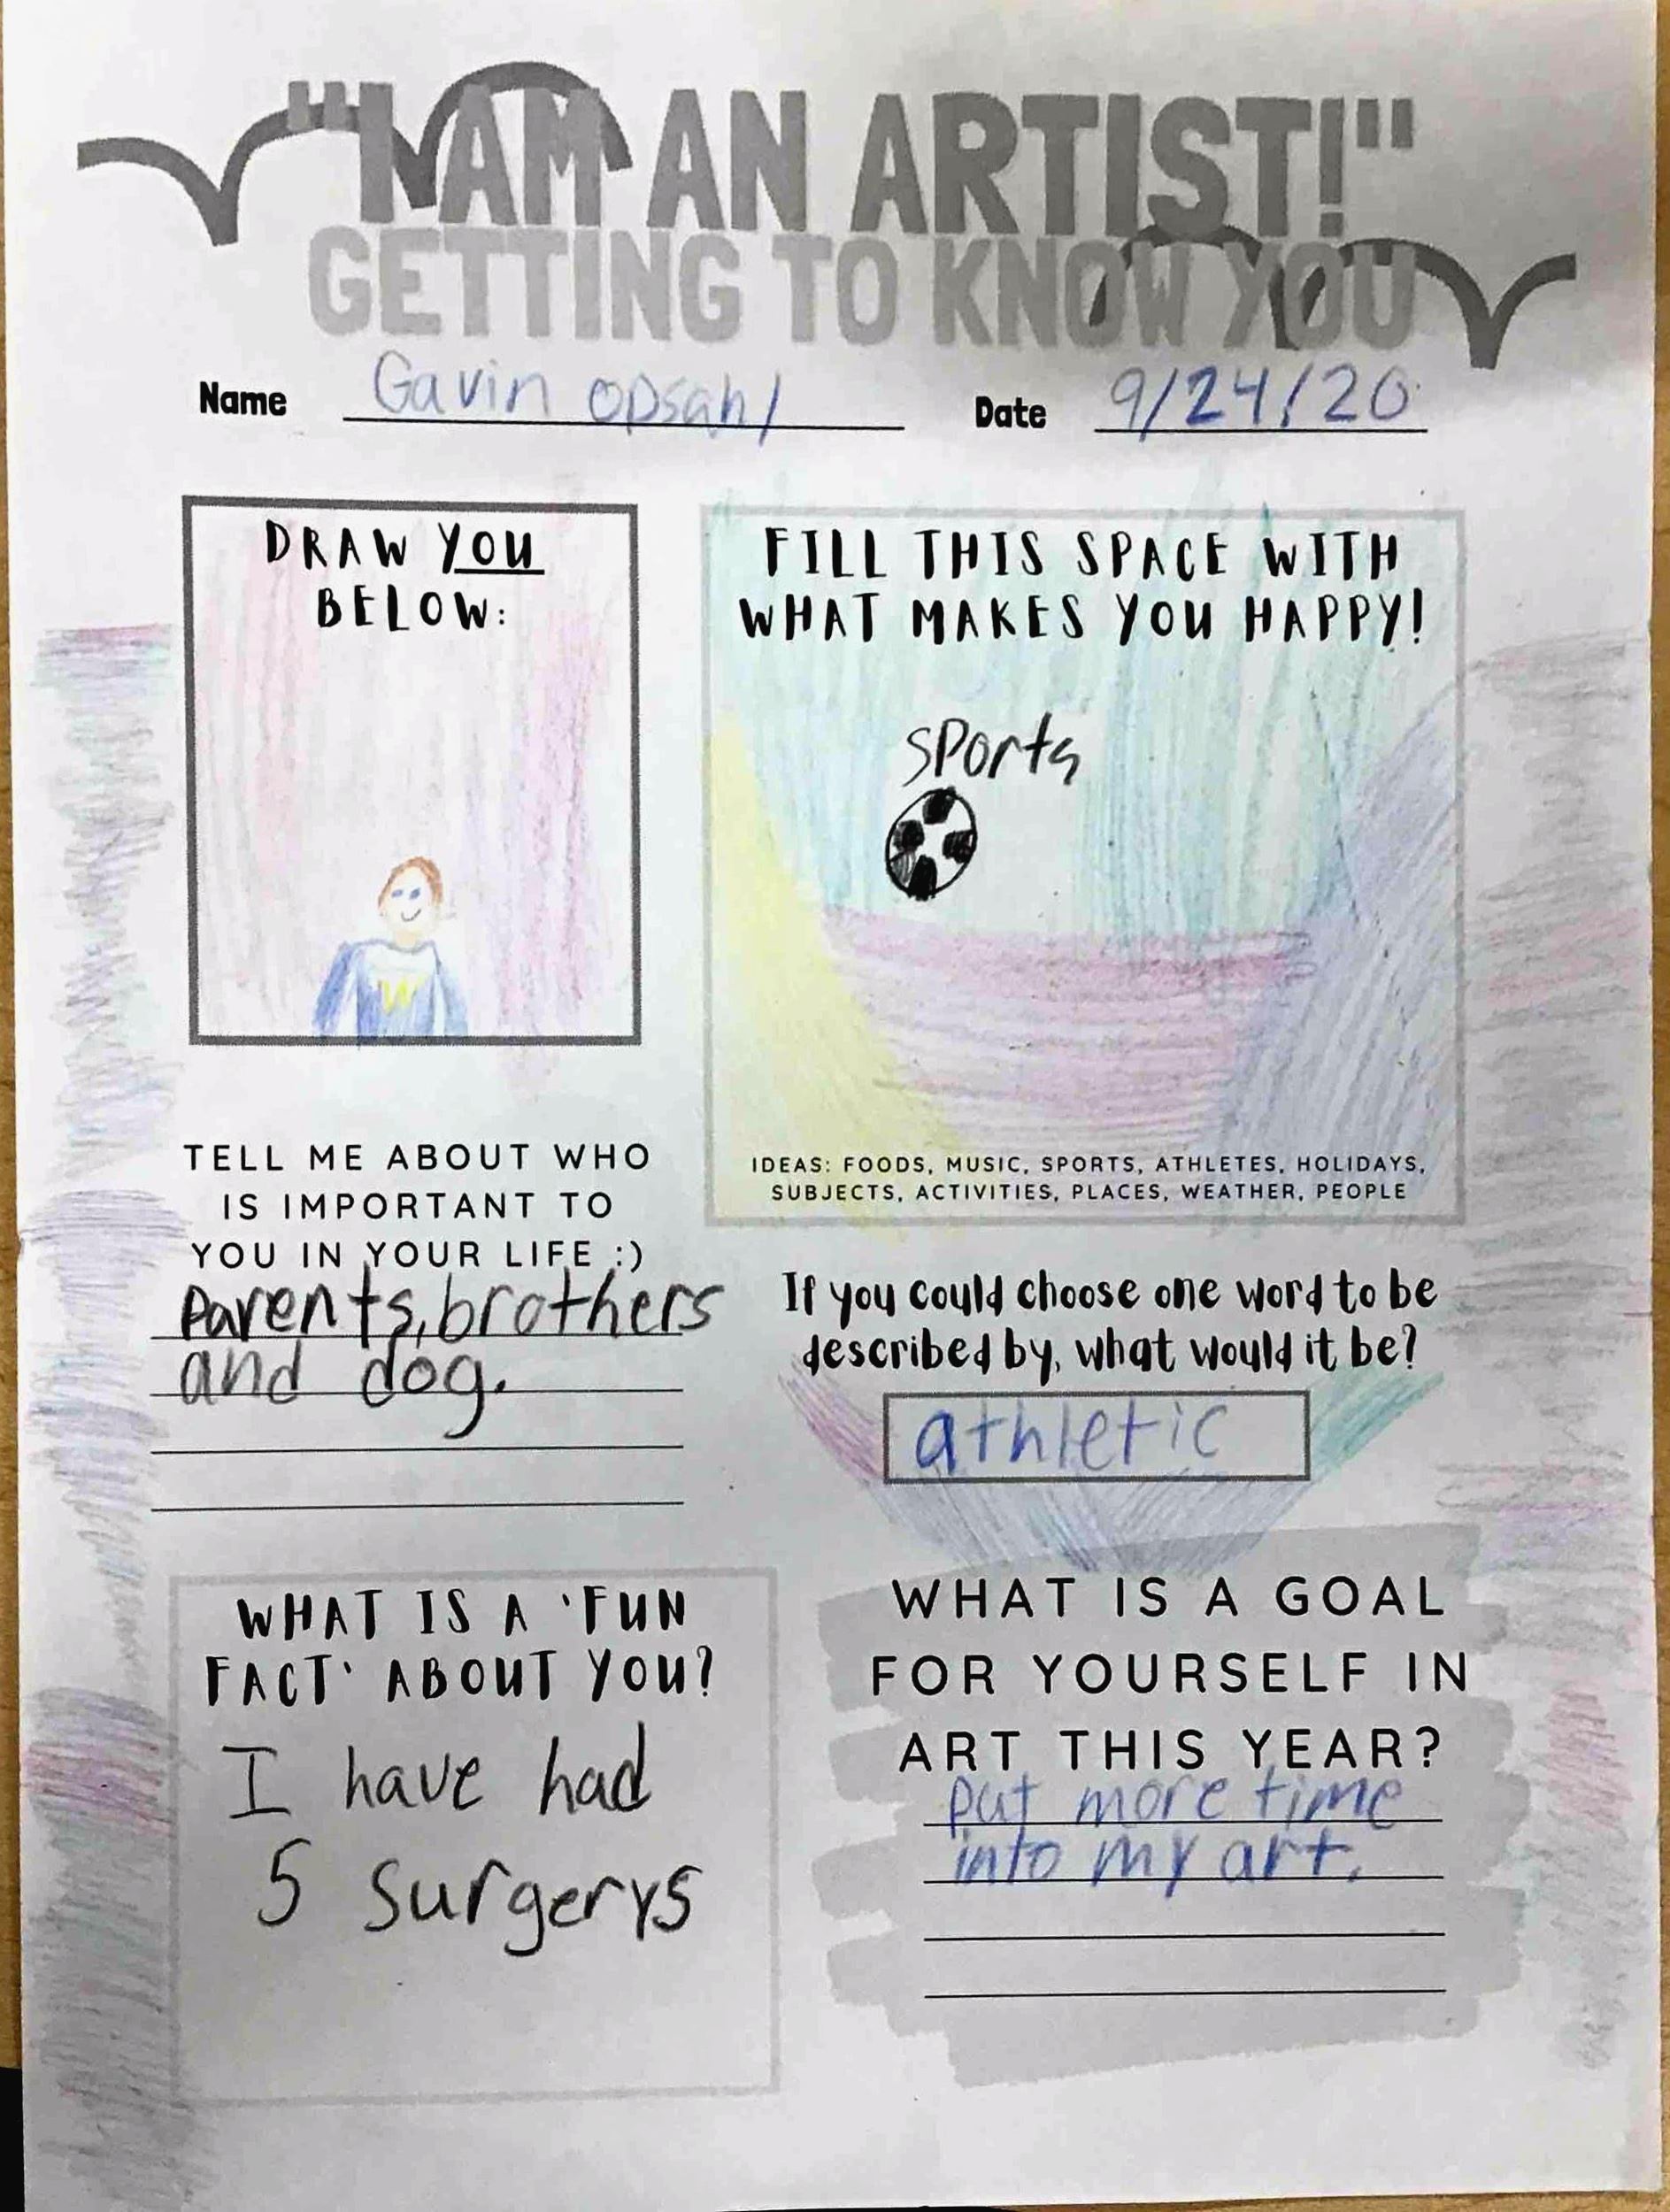 "I AM AN ARTIST!"
GETTING TO KNOW YOU
Name Gavin Opsahl Date 9/24/20
DRAW YOU
BELOW:
FILL THIS SPACE WITH
WHAT MAKES YOU HAPPY!
sports
W
IDEAS: FOODS, MUSIC, SPORTS, ATHLETES, HOLIDAYS,
SUBJECTS, ACTIVITIES, PLACES, WEATHER, PEOPLE
TELL ME ABOUT WHO
IS IMPORTANT TO
YOU IN YOUR LIFE :)
Parents, brothers
and dog.
If you could choose one word to be
described by, what would it be?
athletic
WHAT IS A 'FUN
FACT' ABOUT YOU?
I have had
5 surgerys
WHAT IS A GOAL
FOR YOURSELF IN
ART THIS YEAR?
put more time
into my art.